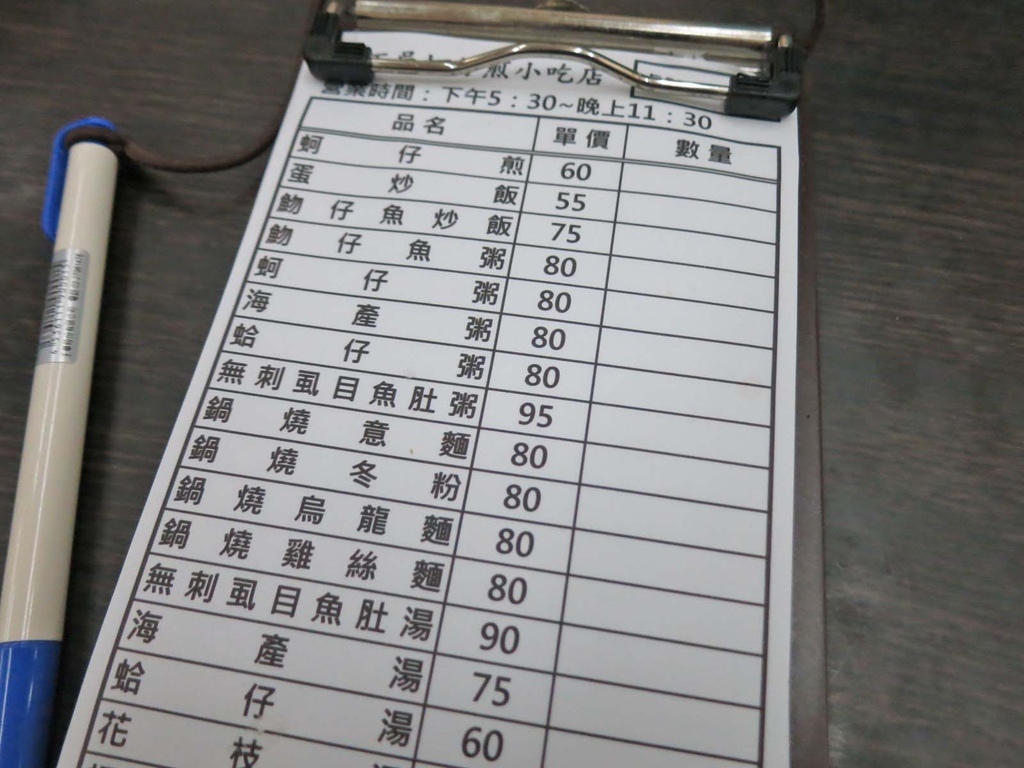 煎小吃店
營業時間：下午5：30~晚上11：30
品名 單價 數量
蚵仔煎 60
蛋炒飯 55
魩仔魚炒飯 75
魩仔魚粥 80
蚵仔粥 80
海產粥 80
蛤仔粥 80
無刺虱目魚肚粥 95
鍋燒意麵 80
鍋燒冬粉 80
鍋燒烏龍麵 80
鍋燒雞絲麵 80
無刺虱目魚肚湯 90
海產湯 75
蛤仔湯 60
花枝